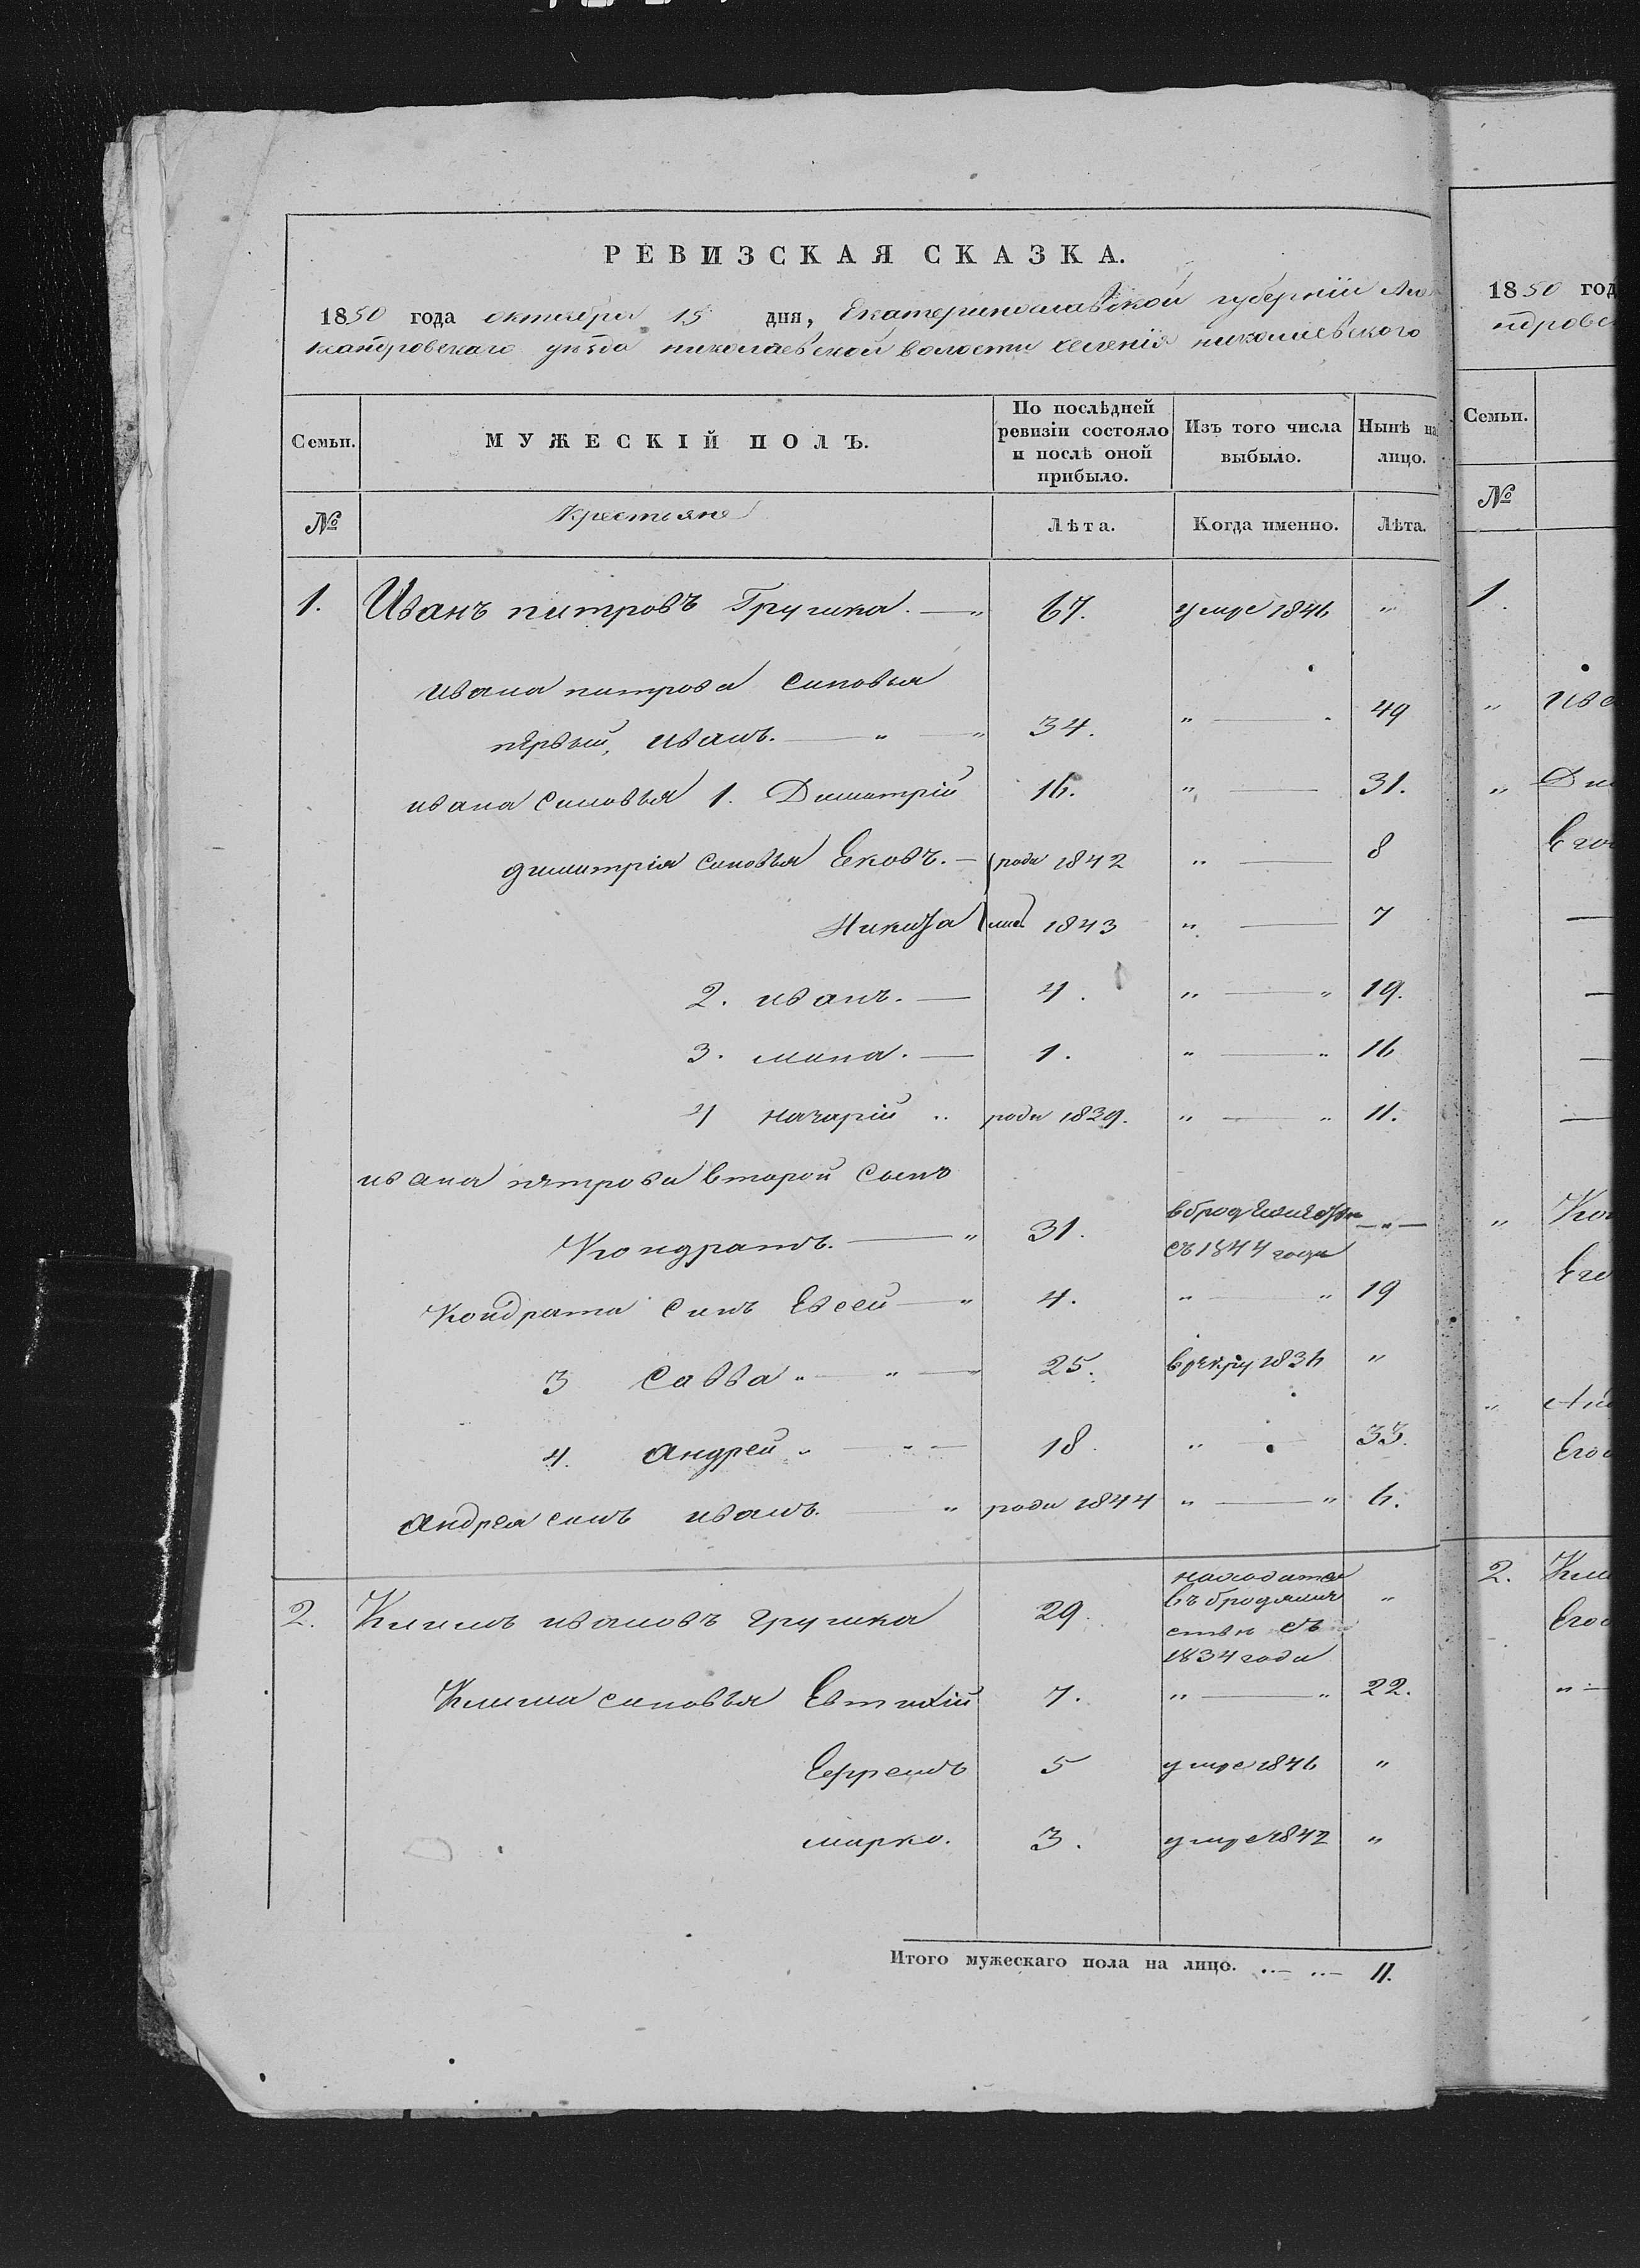 РЕВИЗСКАЯ СКАЗКА.
1850 года октября 15 дня, Екатеринославской губерніи Але
ксандровскаго уѣзда николаевской волости селенія николаевского
Семьи. МУЖЕСКІЙ ПОЛЪ. По послѣдней ревизіи состояло и послѣ оной прибыло. Изъ того числа выбыло. Нынѣ на лицо.
№ Крестьяне Лѣта. Когда именно. Лѣта.
1. Иванъ питровъ Грушка. — „ 67. умре 1846 „
ивана питрова синовья
первый, иванъ. — „ — „ 34. „ — 49
ивана синовья 1. Димитрій 16. „ — 31.
димитрія синовья Яковъ. — роди 1842 „ — 8
Никита 1843 „ — 7
2. иванъ. — 4. „ — „ 19.
3. мина. — 1. „ — „ 16
4 назарій „ роди 1839. „ — „ 11.
ивана питрова второй сынъ
Кондратъ. — „ 31. — „ —
съ 1844 года
Кондрата синъ Евсей — „ 4. „ — „ 19
3 Савва „ — „ — 25. в рекру 1836 „
4. Андрей „ — „ — 18. „ — 33.
Андрея синъ иванъ. — „ роди 1844 „ — „ 6.
2. Климъ ивановъ грушка 29. находится „
въ бродяжи
ствѣ съ
1834 года
Клима синовья Евтихій 7. „ — „ 22.
Ефремъ 5 умре 1846 „
марко. 3. умре 1842 „
Итого мужескаго пола на лицо. „— „— 11.
1850 год
ндровс
Семьи.
№
1.
„ ива
„ Ди
Его
„ Кон
Его
„ Анд
Его
2. Кли
Его
„ —